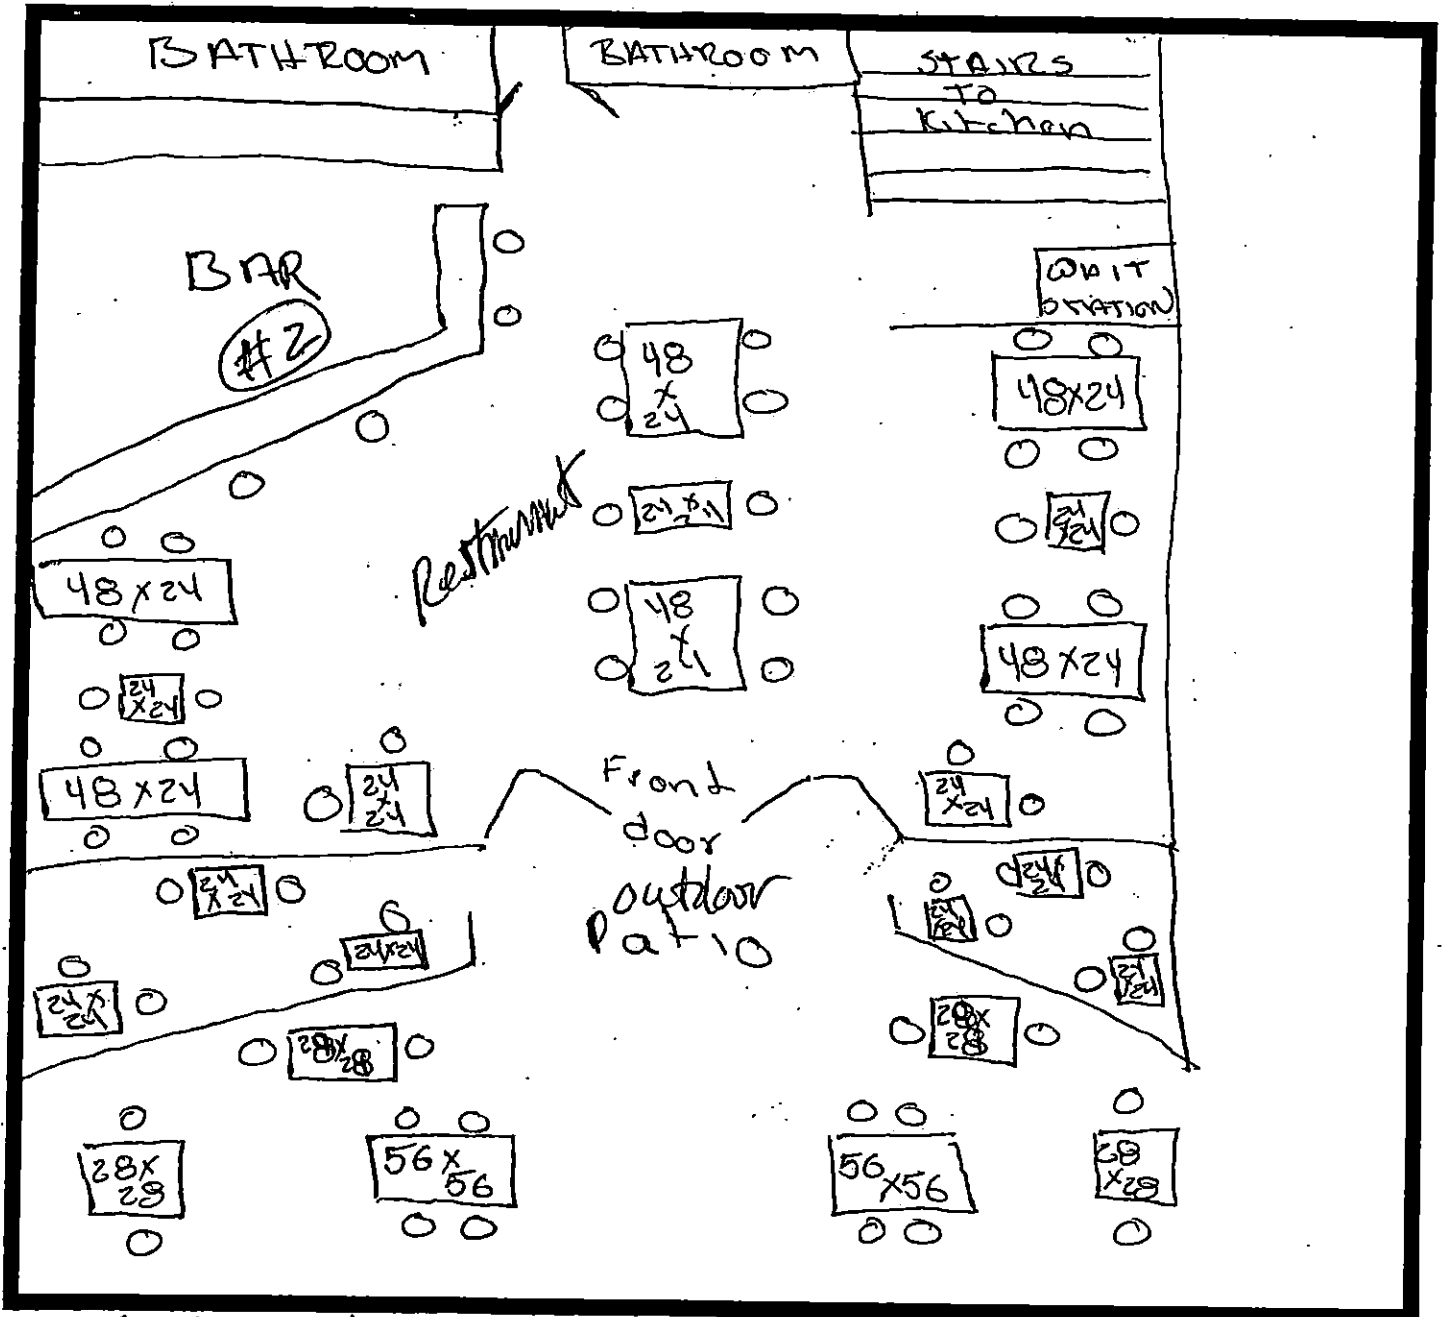 BATHROOM
BATHROOM
STAIRS
TO
Kitchen
BAR
#2
WAIT
STATION
48
x
24
48x24
24x24
24
x24
Restaurant
48x24
48
x
24
48x24
24
x24
48x24
24
x
24
Front
door
24
x24
24
x24
outdoor
Patio
24x
24
24
x24
24x24
24
x24
24x
24
28x
28
28x
28
28x
28
56x
56
56
x56
28
x28